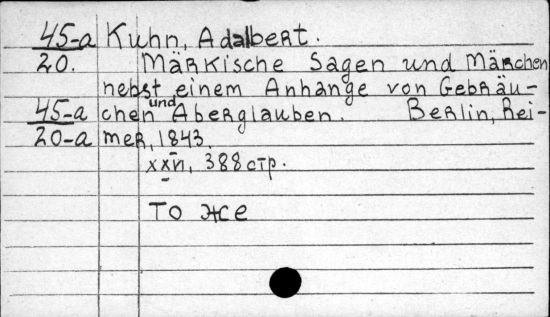 45-a Kuhn, Adalbert.
20. Märkische Sagen und Märchen
nebst einem Anhange von Gebräu-
45-a chen und Aberglauben. Berlin, Rei-
20-a mer, 1843.
XXVI, 388 стр.
То же